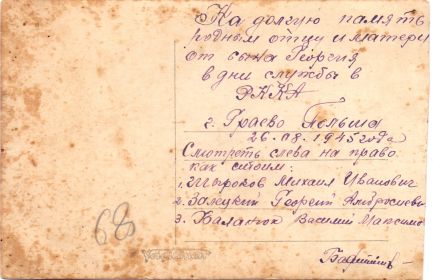 На долгую память
родным отцу и матери
от сына Георгия
в дни службы в
РККА
г. Граево Польша
26.08.1945 года
Смотреть слева на право
как стоим:
1. Широков Михаил Иванович
2. Залецкий Георгий Амбросиевич
3. Баланюк Василий Максимо
68